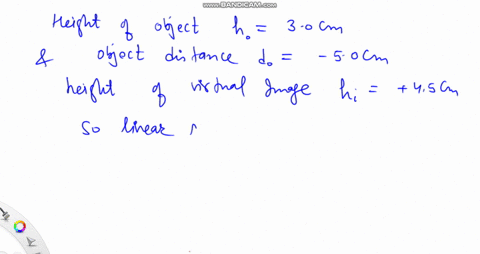 www.BANDICAM.com
Height of object h₀ = 3.0 cm
& object distance d₀ = - 5.0 cm
height of virtual Image hᵢ = +4.5 cm
So linear